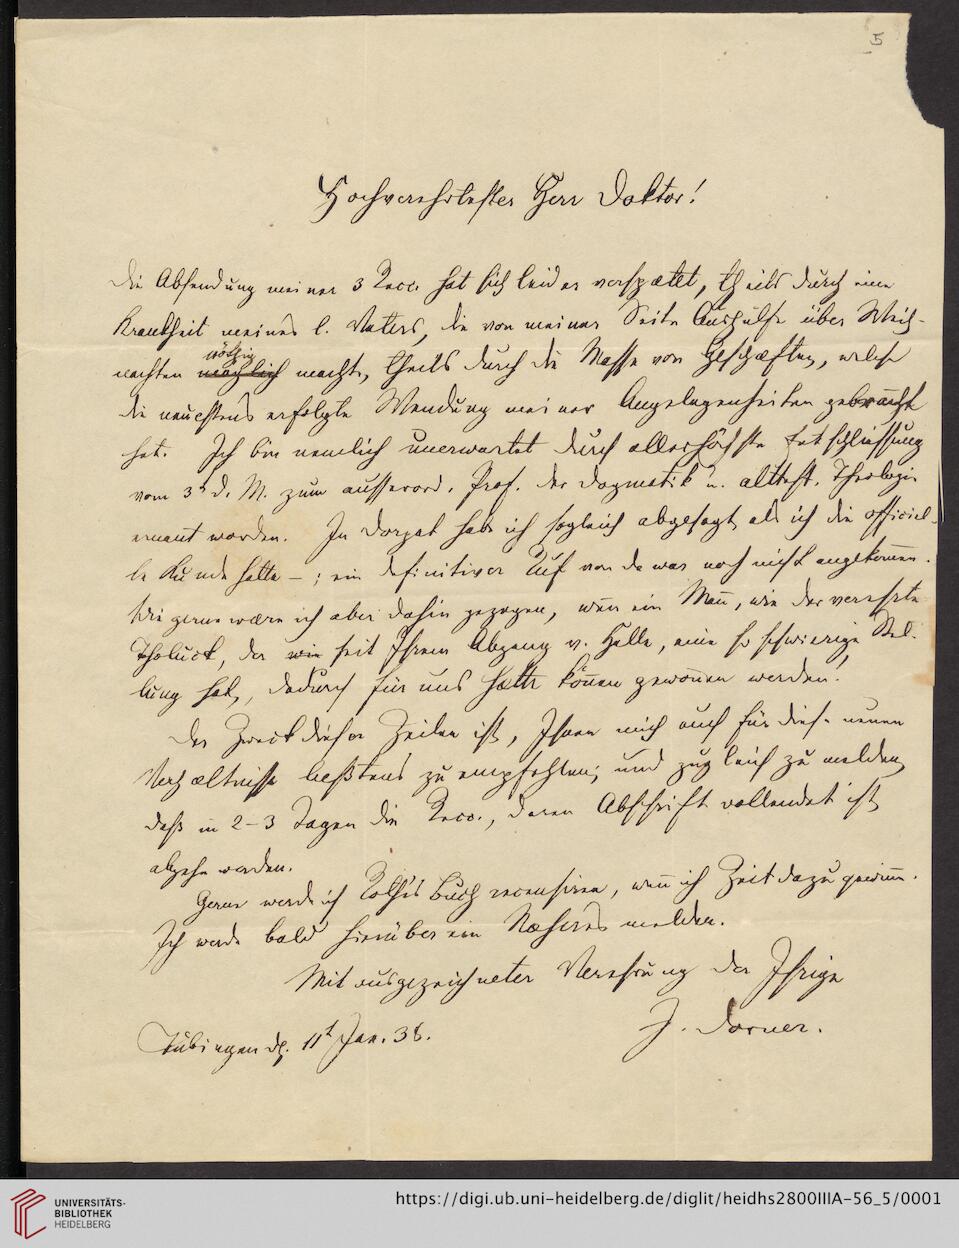 5
Hochverehrtester Herr Doktor!
Die Absendung meiner 3 Recc. hat sich leider verspætet, theils durch eine
Krankheit meines l. Vaters, die von meiner Seite Aushülfe über Weih-
nachten nöthig machte, theils durch die Masse von Geschæften, welche
die neuestens erfolgte Wendung meiner Angelegenheiten gebracht
hat. Ich bin nemlich unerwartet durch allerhöchste Entschliessung
vom 3t d. M. zum ausserord. Prof. der Dogmatik u. alttest. Theologie
ernant worden. In Dorpat habe ich sogleich abgesagt, als ich die officiel-
le Kunde hatte – ; ein definitiver Ruf von da war noch nicht angekom̄en.
Wie gerne wære ich aber dahin gezogen, wen̄ ein Man̄, wie der verehrte
Tholuck, der wie seit Ihrem Abgang v. Halle, eine so schwierige Stel-
lung hat, dadurch für uns hætte kön̄en gewon̄en werden!
Der Zweck dieser Zeilen ist, Ihnen mich auch für diese neuen
Verhæltnisse bestens zu empfehlen; und zugleich zu melden,
daß in 2–3 Tagen die Recc., deren Abschrift vollendet ist,
abgehn werden.
Gerne werde ich Rothe's Buch recensiren, wen̄ ich Zeit dazu gewin̄e.
Ich werde bald hierüber ein Næheres melden.
Mit ausgezeichneter Verehrung der Ihrige
J. Dorner.
Tübingen d. 11t Jan. 38.
UNIVERSITÄTS-
BIBLIOTHEK
HEIDELBERG
https://digi.ub.uni-heidelberg.de/diglit/heidhs2800IIIA-56_5/0001